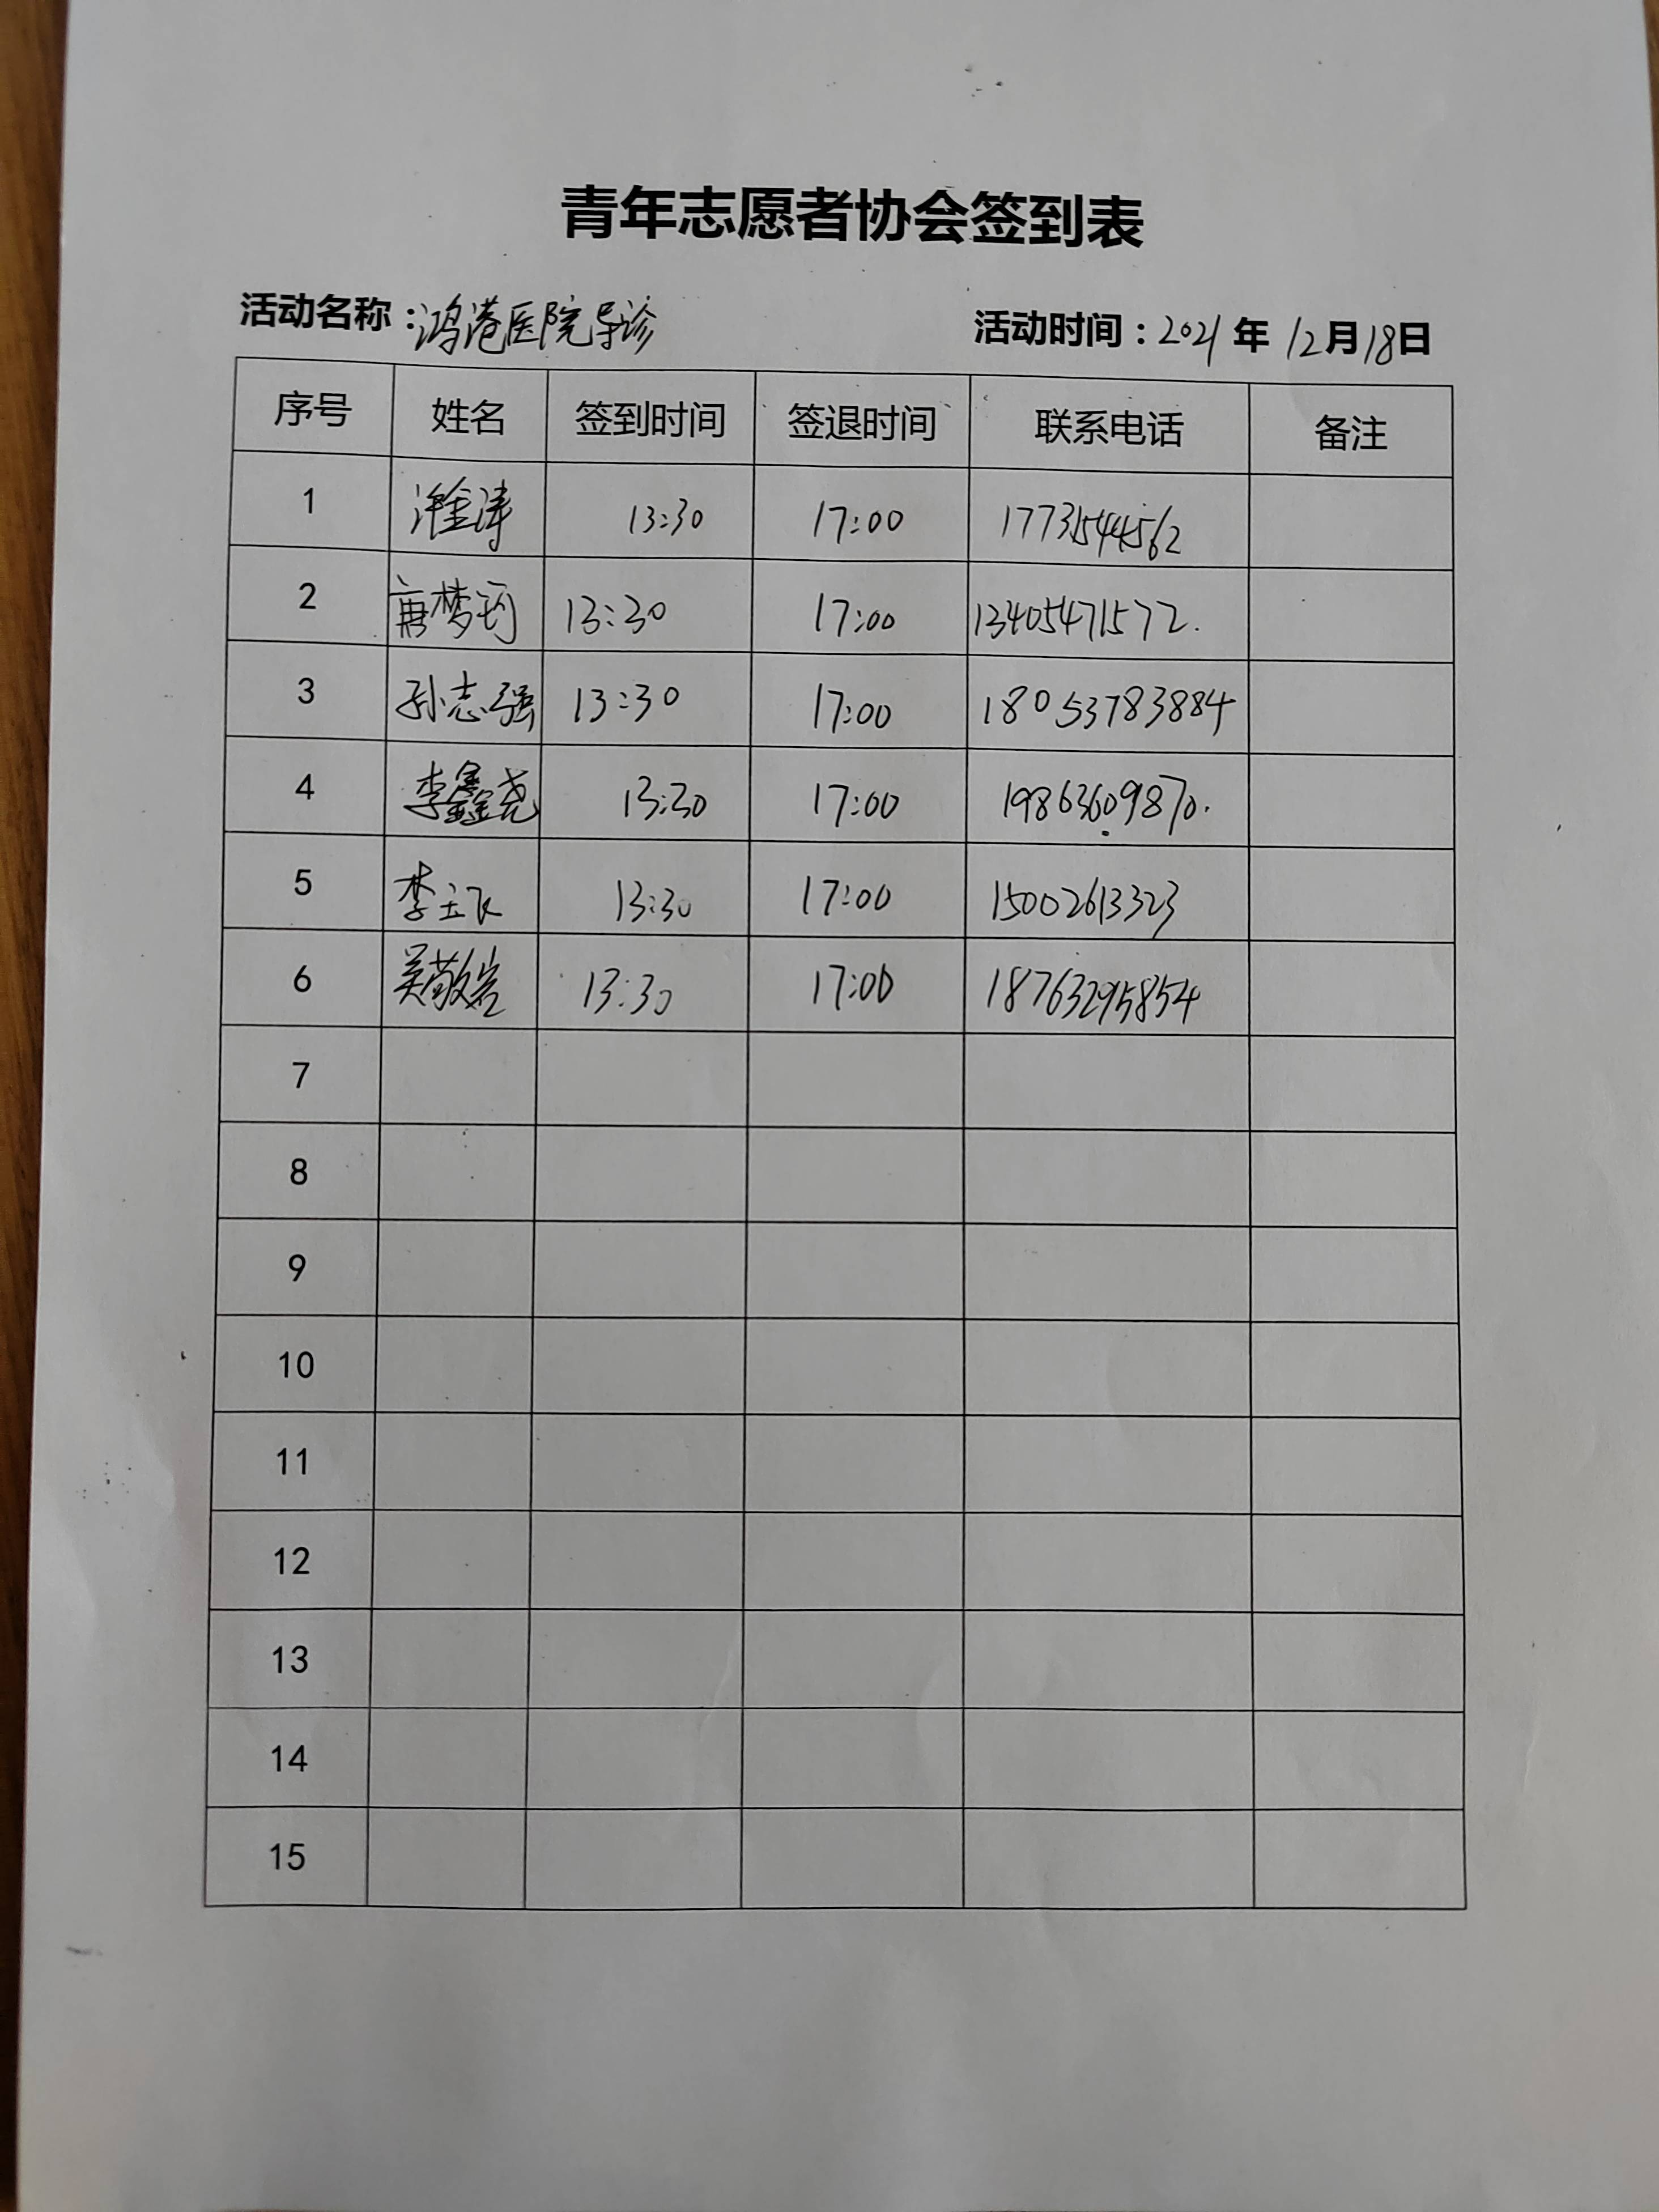 青年志愿者协会签到表
活动名称：鸿港医院导诊 活动时间：2021年12月18日
序号 姓名 签到时间 签退时间 联系电话 备注
1 13:30 17:00 17731544562
2 唐梦珂 13:30 17:00 13405471572.
3 孙志强 13:30 17:00 18053783884
4 李鑫尧 13:30 17:00 19863609870.
5 13:30 17:00 15002613323
6 吴敬岩 13:30 17:00 18763295854
7
8
9
10
11
12
13
14
15